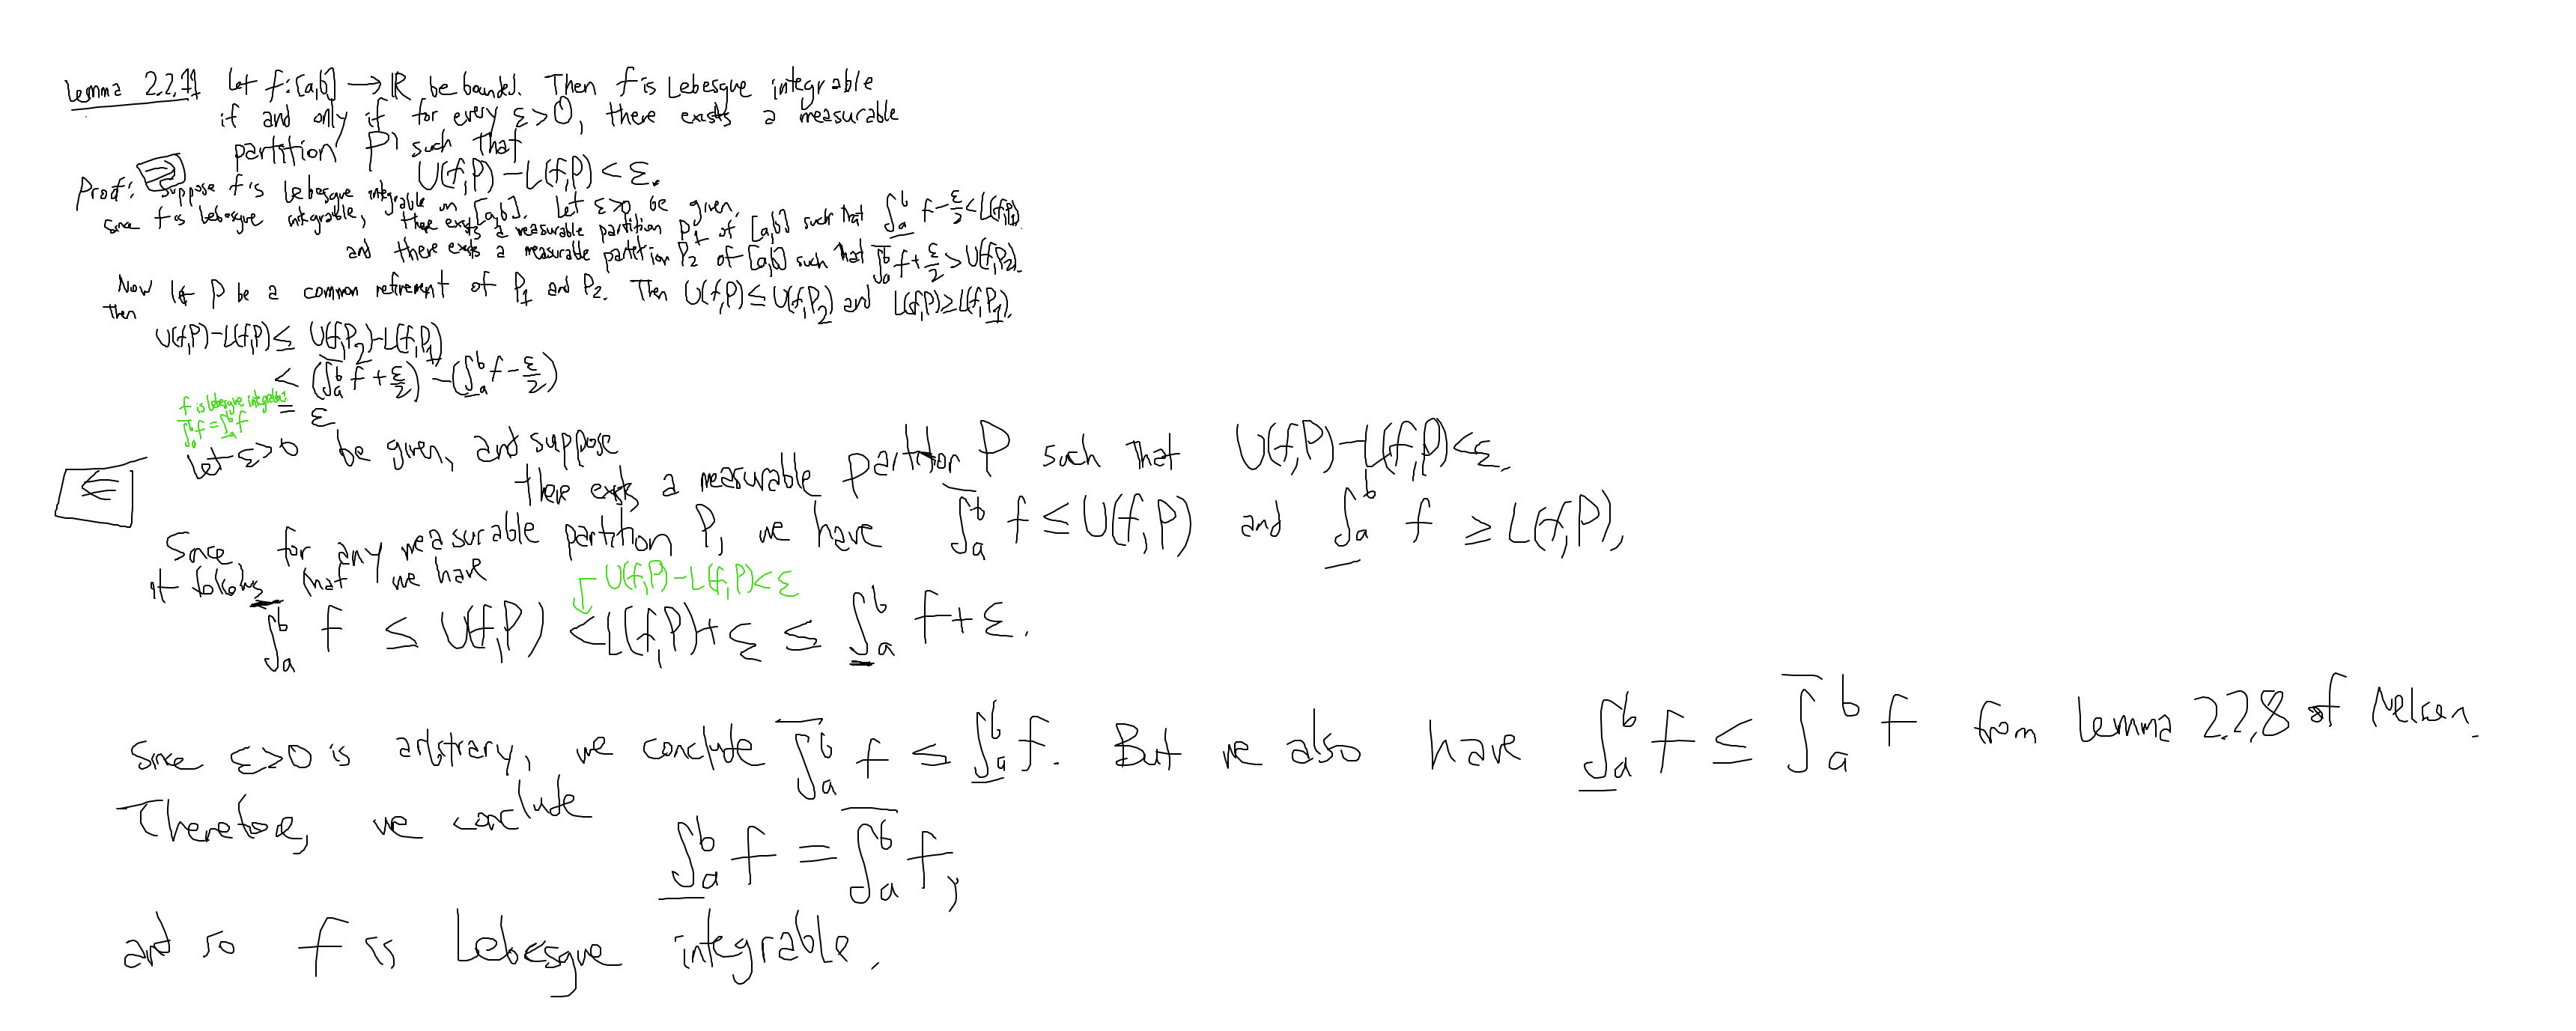 Lemma 2.2.11 Let f:[a,b] → ℝ be bounded. Then f is Lebesgue integrable
if and only if for every ε>0, there exists a measurable
partition P such that
U(f,P) - L(f,P) < ε.
Proof: ⇒ Suppose f is Lebesgue integrable on [a,b]. Let ε>0 be given.
Since f is Lebesgue integrable, there exists a measurable partition P₁ of [a,b] such that \underline{∫}_a^b f - ε/2 < L(f,P₁)
and there exists a measurable partition P₂ of [a,b] such that \overline{∫}_a^b f + ε/2 > U(f,P₂).
Now let P be a common refinement of P₁ and P₂. Then U(f,P) ≤ U(f,P₂) and L(f,P) ≥ L(f,P₁).
Then
U(f,P) - L(f,P) ≤ U(f,P₂) - L(f,P₁)
< (\overline{∫}_a^b f + ε/2) - (\underline{∫}_a^b f - ε/2)
f is Lebesgue integrable:
= ε
\overline{∫}_a^b f = \underline{∫}_a^b f
⇐ Let ε>0 be given, and suppose
there exists a measurable partition P such that U(f,P) - L(f,P) < ε.
Since, for any measurable partition P, we have \overline{∫}_a^b f ≤ U(f,P) and \underline{∫}_a^b f ≥ L(f,P),
it follows that we have
U(f,P) - L(f,P) < ε
\overline{∫}_a^b f ≤ U(f,P) < L(f,P) + ε ≤ \underline{∫}_a^b f + ε.
Since ε>0 is arbitrary, we conclude \overline{∫}_a^b f ≤ \underline{∫}_a^b f. But we also have \underline{∫}_a^b f ≤ \overline{∫}_a^b f from Lemma 2.2.8 of Nelsen.
Therefore, we conclude
\underline{∫}_a^b f = \overline{∫}_a^b f,
and so f is Lebesgue integrable.